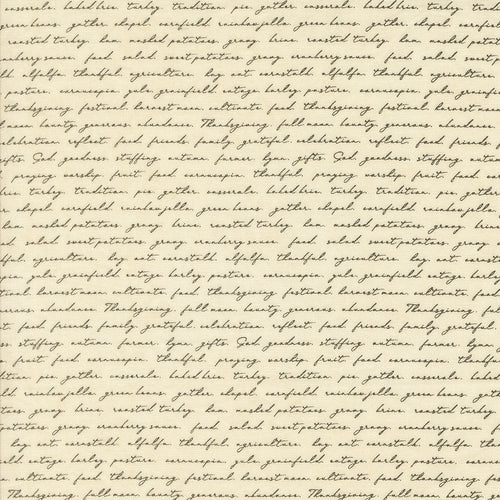 casserole. baked brie. turkey. tradition. pie. gather. casserole. baked brie. turkey. tradition.
green beans. gather. chapel. cornfield. rainbow jello. green beans. gather. chapel. cornfield.
roasted turkey. ham. mashed potatoes. gravy. brine. roasted turkey. ham. mashed potatoes.
cranberry sauce. food. salad. sweet potatoes. gravy. cranberry sauce. food. salad. sweet
alfalfa. thankful. agriculture. hay. oat. cornstalk. alfalfa. thankful. agriculture.
pasture. cornucopia. yule. grainfield. cottage. barley. pasture. cornucopia. yule. grainfield.
thanksgiving. festival. harvest moon. cultivate. food. thanksgiving. festival. harvest moon.
full moon. bounty. generous. abundance. Thanksgiving. full moon. bounty. generous. abundance.
celebration. reflect. food. friends. family. grateful. celebration. reflect. food. friends.
gifts. God. goodness. stuffing. autumn. farmer. hymn. gifts. God. goodness. stuffing. autumn.
praying. worship. fruit. food. cornucopia. thankful. praying. worship. fruit. food.
brie. turkey. tradition. pie. gather. casserole. baked brie. turkey. tradition. pie. gather.
chapel. cornfield. rainbow jello. green beans. gather. chapel. cornfield. rainbow jello.
ham. mashed potatoes. gravy. brine. roasted turkey. ham. mashed potatoes. gravy.
salad. sweet potatoes. gravy. cranberry sauce. food. salad. sweet potatoes. gravy.
agriculture. hay. oat. cornstalk. alfalfa. thankful. agriculture. hay. oat.
yule. grainfield. cottage. barley. pasture. cornucopia. yule. grainfield. cottage.
harvest moon. cultivate. food. thanksgiving. festival. harvest moon. cultivate. food.
abundance. Thanksgiving. full moon. bounty. generous. abundance. Thanksgiving. full
food. friends. family. grateful. celebration. reflect. food. friends. family. grateful.
stuffing. autumn. farmer. hymn. gifts. God. goodness. stuffing. autumn. farmer. hymn.
fruit. food. cornucopia. thankful. praying. worship. fruit. food. cornucopia. thankful.
pie. gather. casserole. baked brie. turkey. tradition. pie. gather. casserole. baked
rainbow jello. green beans. gather. chapel. cornfield. rainbow jello. green beans.
gravy. brine. roasted turkey. ham. mashed potatoes. gravy. brine. roasted turkey.
gravy. cranberry sauce. food. salad. sweet potatoes. gravy. cranberry sauce. food.
hay. oat. cornstalk. alfalfa. thankful. agriculture. hay. oat. cornstalk. alfalfa.
cottage. barley. pasture. cornucopia. yule. grainfield. cottage. barley. pasture.
cultivate. food. thanksgiving. festival. harvest moon. cultivate. food. thanksgiving.
Thanksgiving. full moon. bounty. generous. abundance. Thanksgiving. full moon. bounty.